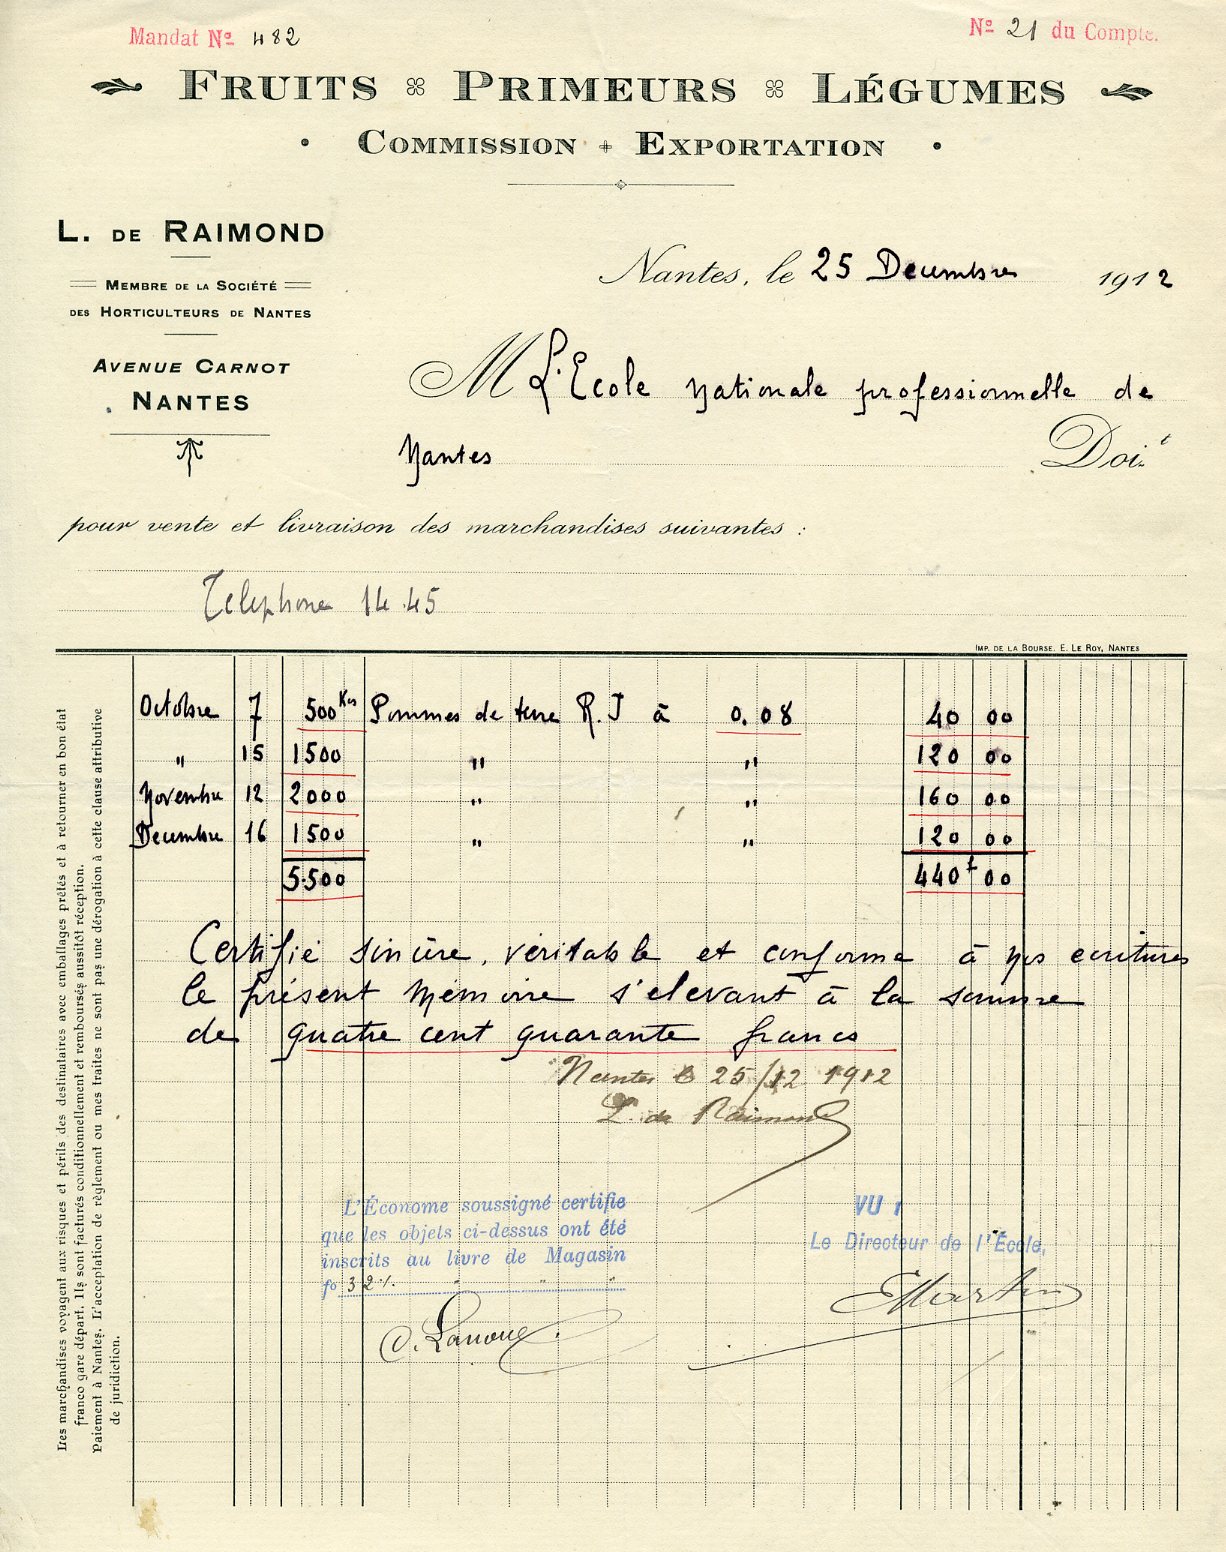 Mandat Nº 482
Nº 21 du Compte.
FRUITS PRIMEURS LÉGUMES
COMMISSION + EXPORTATION
L. DE RAIMOND
MEMBRE DE LA SOCIÉTÉ
DES HORTICULTEURS DE NANTES
AVENUE CARNOT
NANTES
Nantes, le 25 Decembre 1912
M L'Ecole Nationale professionnelle de
Nantes Doit
pour vente et livraison des marchandises suivantes :
Telephone 14.45
IMP. DE LA BOURSE. E. LE ROY, NANTES
Octobre 7 500 Kos Pommes de terre R. J à 0.08 40 00
" 15 1500 " " 120 00
Novembre 12 2000 " " 160 00
Decembre 16 1500 " " 120 00
5.500 440f 00
Certifié sincère, véritable et conforme à mes ecritures
le présent Mémoire s'elevant à la somme
de quatre cent quarante francs
Nantes le 25/12 1912
L. de Raimond
L'Économe soussigné certifie
que les objets ci-dessus ont été
inscrits au livre de Magasin
fo 32
VU :
Le Directeur de l'École,
C. Lanoue
EMartin
Les marchandises voyagent aux risques et périls des destinataires avec emballages prêtés et à retourner en bon état
franco gare départ. Ils sont facturés conditionnellement et remboursés aussitôt réception.
Paiement à Nantes. L'acceptation de règlement ou mes traites ne sont pas une dérogation à cette clause attributive
de juridiction.